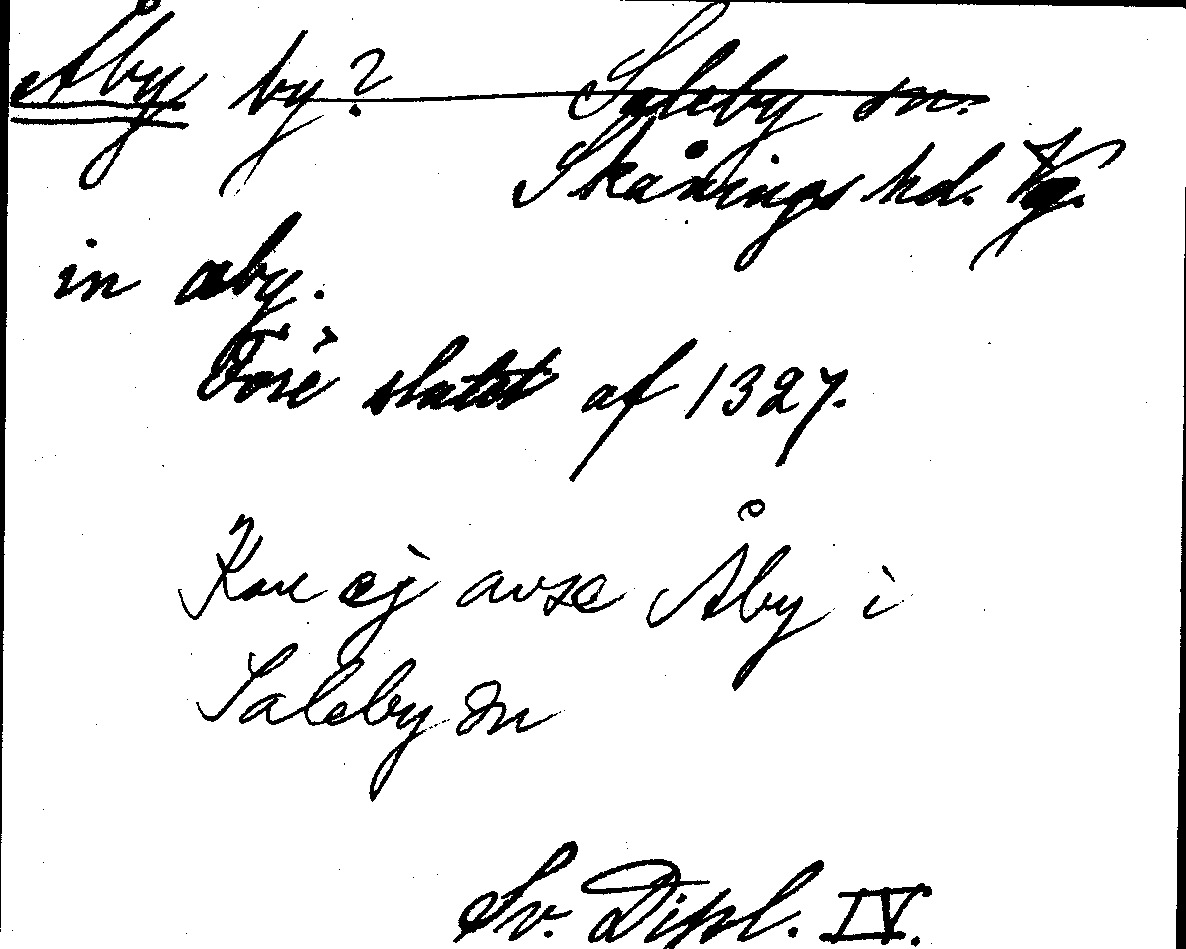 Åby. by? Saleby sn.
Skånings hd. Vg.
in aby.
Före slutet af 1327.
Kan ej avse Åby i
Saleby sn
Sv. Dipl. IV.